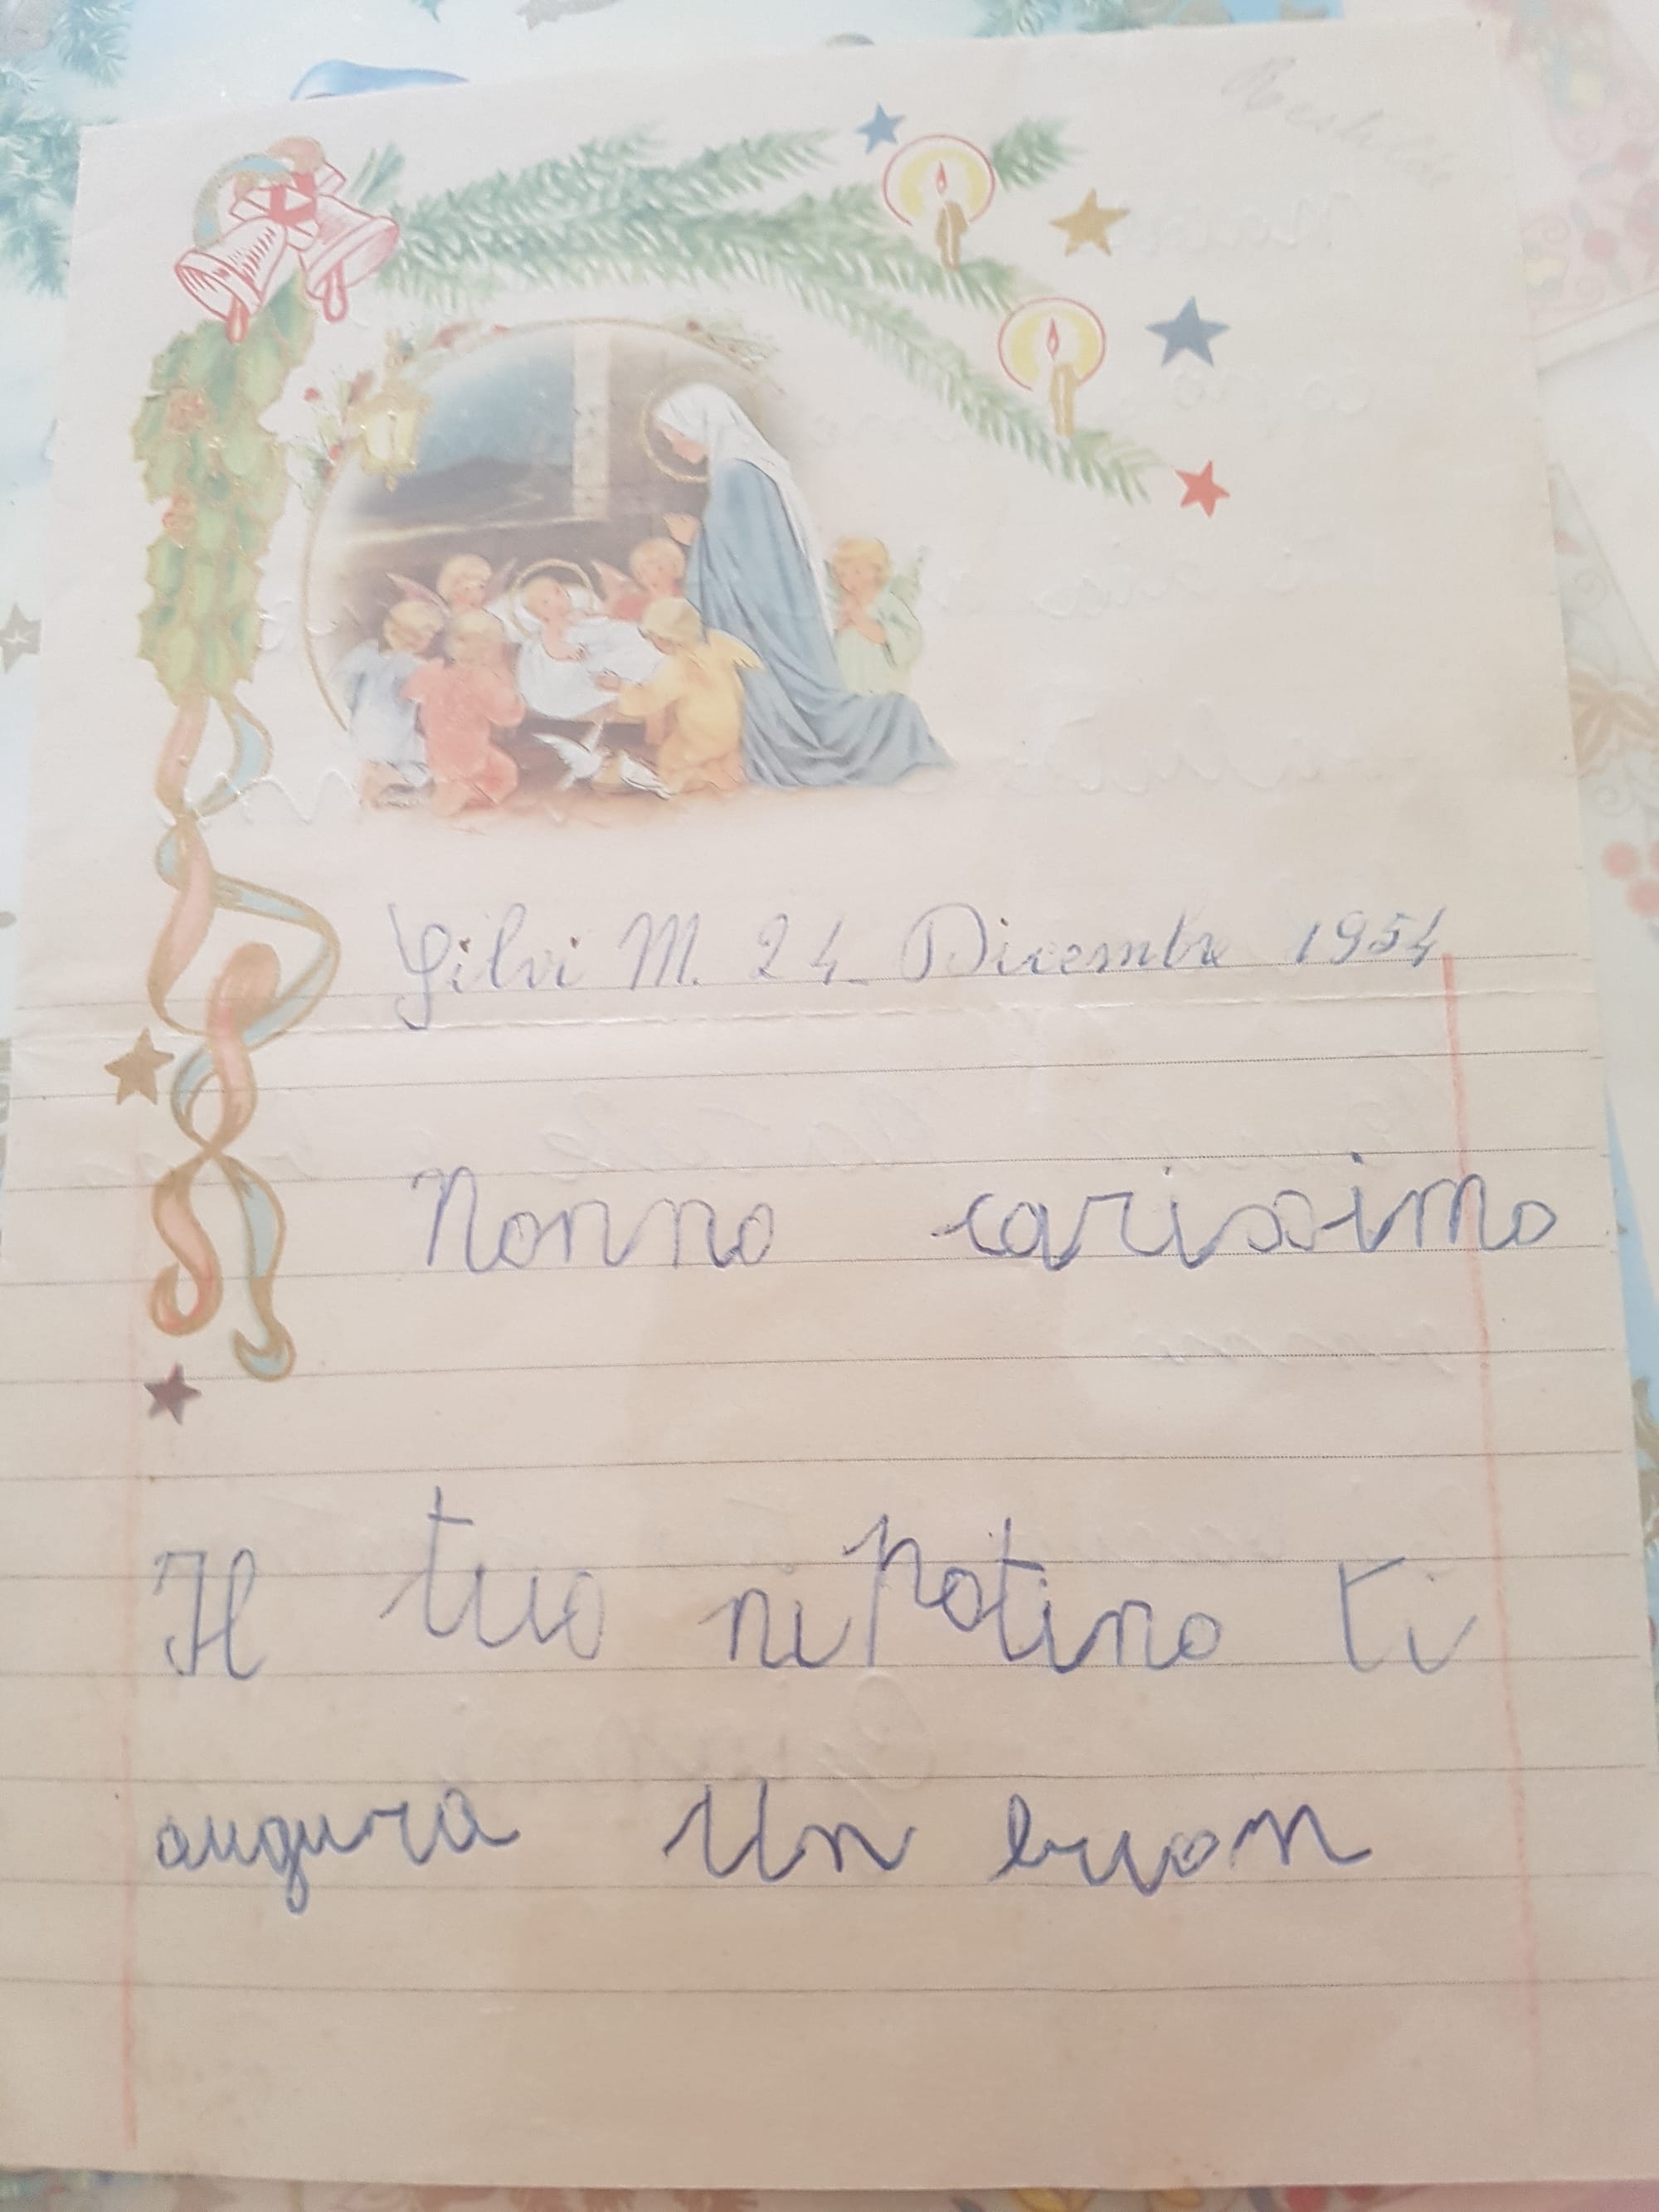 Silvi M. 24 Dicembre 1954
Nonno carissimo
Il tuo nipotino ti
augura Un buon